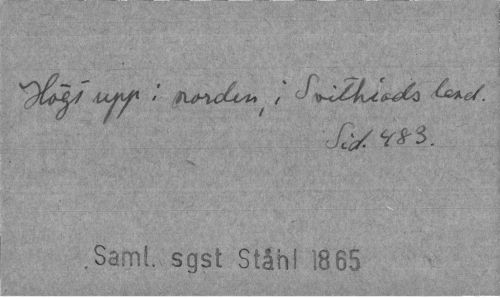 Högt upp i norden, i Svithiods land.
Sid. 483.
Saml. sgst Ståhl 1865